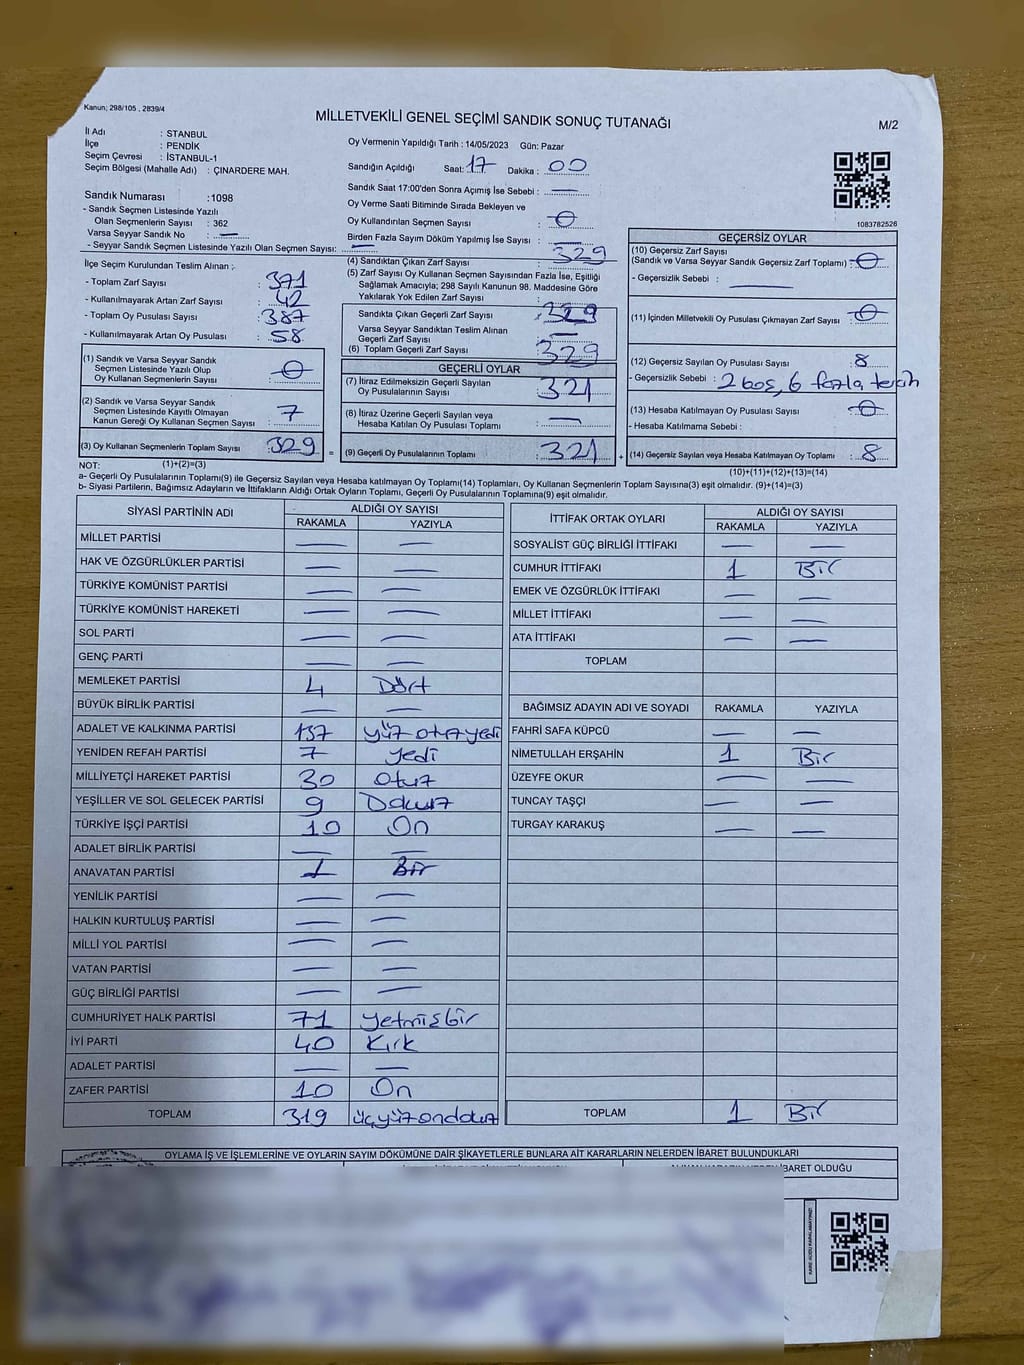 Kanun; 298/105 , 2839/4
MİLLETVEKİLİ GENEL SEÇİMİ SANDIK SONUÇ TUTANAĞI
M/2
İl Adı : STANBUL
İlçe : PENDİK
Seçim Çevresi : İSTANBUL-1
Seçim Bölgesi (Mahalle Adı) : ÇINARDERE MAH.
Oy Vermenin Yapıldığı Tarih : 14/05/2023 Gün: Pazar
Sandığın Açıldığı Saat: 17 Dakika : 00
Sandık Saat 17:00'den Sonra Açımış İse Sebebi : —
Oy Verme Saati Bitiminde Sırada Bekleyen ve
Oy Kullandırılan Seçmen Sayısı : 0
Birden Fazla Sayım Döküm Yapılmış İse Sayısı : —
Sandık Numarası : 1098
- Sandık Seçmen Listesinde Yazılı
Olan Seçmenlerin Sayısı : 362
Varsa Seyyar Sandık No : —
- Seyyar Sandık Seçmen Listesinde Yazılı Olan Seçmen Sayısı: —
1083782526
İlçe Seçim Kurulundan Teslim Alınan ;
- Toplam Zarf Sayısı : 371
- Kullanılmayarak Artan Zarf Sayısı : 42
- Toplam Oy Pusulası Sayısı : 387
- Kullanılmayarak Artan Oy Pusulası : 58
(1) Sandık ve Varsa Seyyar Sandık
Seçmen Listesinde Yazılı Olup
Oy Kullanan Seçmenlerin Sayısı : 0
(2) Sandık ve Varsa Seyyar Sandık
Seçmen Listesinde Kayıtlı Olmayan
Kanun Gereği Oy Kullanan Seçmen Sayısı : 7
(3) Oy Kullanan Seçmenlerin Toplam Sayısı : 329 =
(4) Sandıktan Çıkan Zarf Sayısı : 329
(5) Zarf Sayısı Oy Kullanan Seçmen Sayısından Fazla İse, Eşitliği
Sağlamak Amacıyla; 298 Sayılı Kanunun 98. Maddesine Göre
Yakılarak Yok Edilen Zarf Sayısı :
Sandıkta Çıkan Geçerli Zarf Sayısı : 329
Varsa Seyyar Sandıktan Teslim Alınan
Geçerli Zarf Sayısı : —
(6) Toplam Geçerli Zarf Sayısı : 329
GEÇERLİ OYLAR
(7) İtiraz Edilmeksizin Geçerli Sayılan
Oy Pusulalarının Sayısı : 321
(8) İtiraz Üzerine Geçerli Sayılan veya
Hesaba Katılan Oy Pusulası Toplamı : —
(9) Geçerli Oy Pusulalarının Toplamı : 321 +
GEÇERSİZ OYLAR
(10) Geçersiz Zarf Sayısı
(Sandık ve Varsa Seyyar Sandık Geçersiz Zarf Toplamı) : 0
- Geçersizlik Sebebi : —
(11) İçinden Milletvekili Oy Pusulası Çıkmayan Zarf Sayısı : 0
(12) Geçersiz Sayılan Oy Pusulası Sayısı : 8
- Geçersizlik Sebebi : 2 boş, 6 fazla tercih
(13) Hesaba Katılmayan Oy Pusulası Sayısı : 0
- Hesaba Katılmama Sebebi :
(14) Geçersiz Sayılan veya Hesaba Katılmayan Oy Toplamı : 8
NOT: (1)+(2)=(3)
(10)+(11)+(12)+(13)=(14)
a- Geçerli Oy Pusulalarının Toplamı(9) ile Geçersiz Sayılan veya Hesaba Katılmayan Oy Toplamı(14) Toplamları, Oy Kullanan Seçmenlerin Toplam Sayısına(3) eşit olmalıdır. (9)+(14)=(3)
b- Siyasi Partilerin, Bağımsız Adayların ve İttifakların Aldığı Ortak Oyların Toplamı, Geçerli Oy Pusulalarının Toplamına(9) eşit olmalıdır.
SİYASİ PARTİNİN ADI ALDIĞI OY SAYISI
RAKAMLA YAZIYLA
MİLLET PARTİSİ — —
HAK VE ÖZGÜRLÜKLER PARTİSİ — —
TÜRKİYE KOMÜNİST PARTİSİ — —
TÜRKİYE KOMÜNİST HAREKETİ — —
SOL PARTİ — —
GENÇ PARTİ — —
MEMLEKET PARTİSİ 4 Dört
BÜYÜK BİRLİK PARTİSİ — —
ADALET VE KALKINMA PARTİSİ 137 yüz otuzyedi
YENİDEN REFAH PARTİSİ 7 yedi
MİLLİYETÇİ HAREKET PARTİSİ 30 otuz
YEŞİLLER VE SOL GELECEK PARTİSİ 9 Dokuz
TÜRKİYE İŞÇİ PARTİSİ 10 On
ADALET BİRLİK PARTİSİ — —
ANAVATAN PARTİSİ 1 Bir
YENİLİK PARTİSİ — —
HALKIN KURTULUŞ PARTİSİ — —
MİLLİ YOL PARTİSİ — —
VATAN PARTİSİ — —
GÜÇ BİRLİĞİ PARTİSİ — —
CUMHURİYET HALK PARTİSİ 71 yetmişbir
İYİ PARTİ 40 Kırk
ADALET PARTİSİ — —
ZAFER PARTİSİ 10 On
TOPLAM 319 üçyüzondokuz
İTTİFAK ORTAK OYLARI ALDIĞI OY SAYISI
RAKAMLA YAZIYLA
SOSYALİST GÜÇ BİRLİĞİ İTTİFAKI — —
CUMHUR İTTİFAKI 1 Bir
EMEK VE ÖZGÜRLÜK İTTİFAKI — —
MİLLET İTTİFAKI — —
ATA İTTİFAKI — —
TOPLAM
BAĞIMSIZ ADAYIN ADI VE SOYADI RAKAMLA YAZIYLA
FAHRİ SAFA KÜPCÜ — —
NİMETULLAH ERŞAHİN 1 Bir
ÜZEYFE OKUR — —
TUNCAY TAŞÇI — —
TURGAY KARAKUŞ — —
TOPLAM 1 Bir
OYLAMA İŞ VE İŞLEMLERİNE VE OYLARIN SAYIM DÖKÜMÜNE DAİR ŞİKAYETLERLE BUNLARA AİT KARARLARIN NELERDEN İBARET BULUNDUKLARI
İBARET OLDUĞU